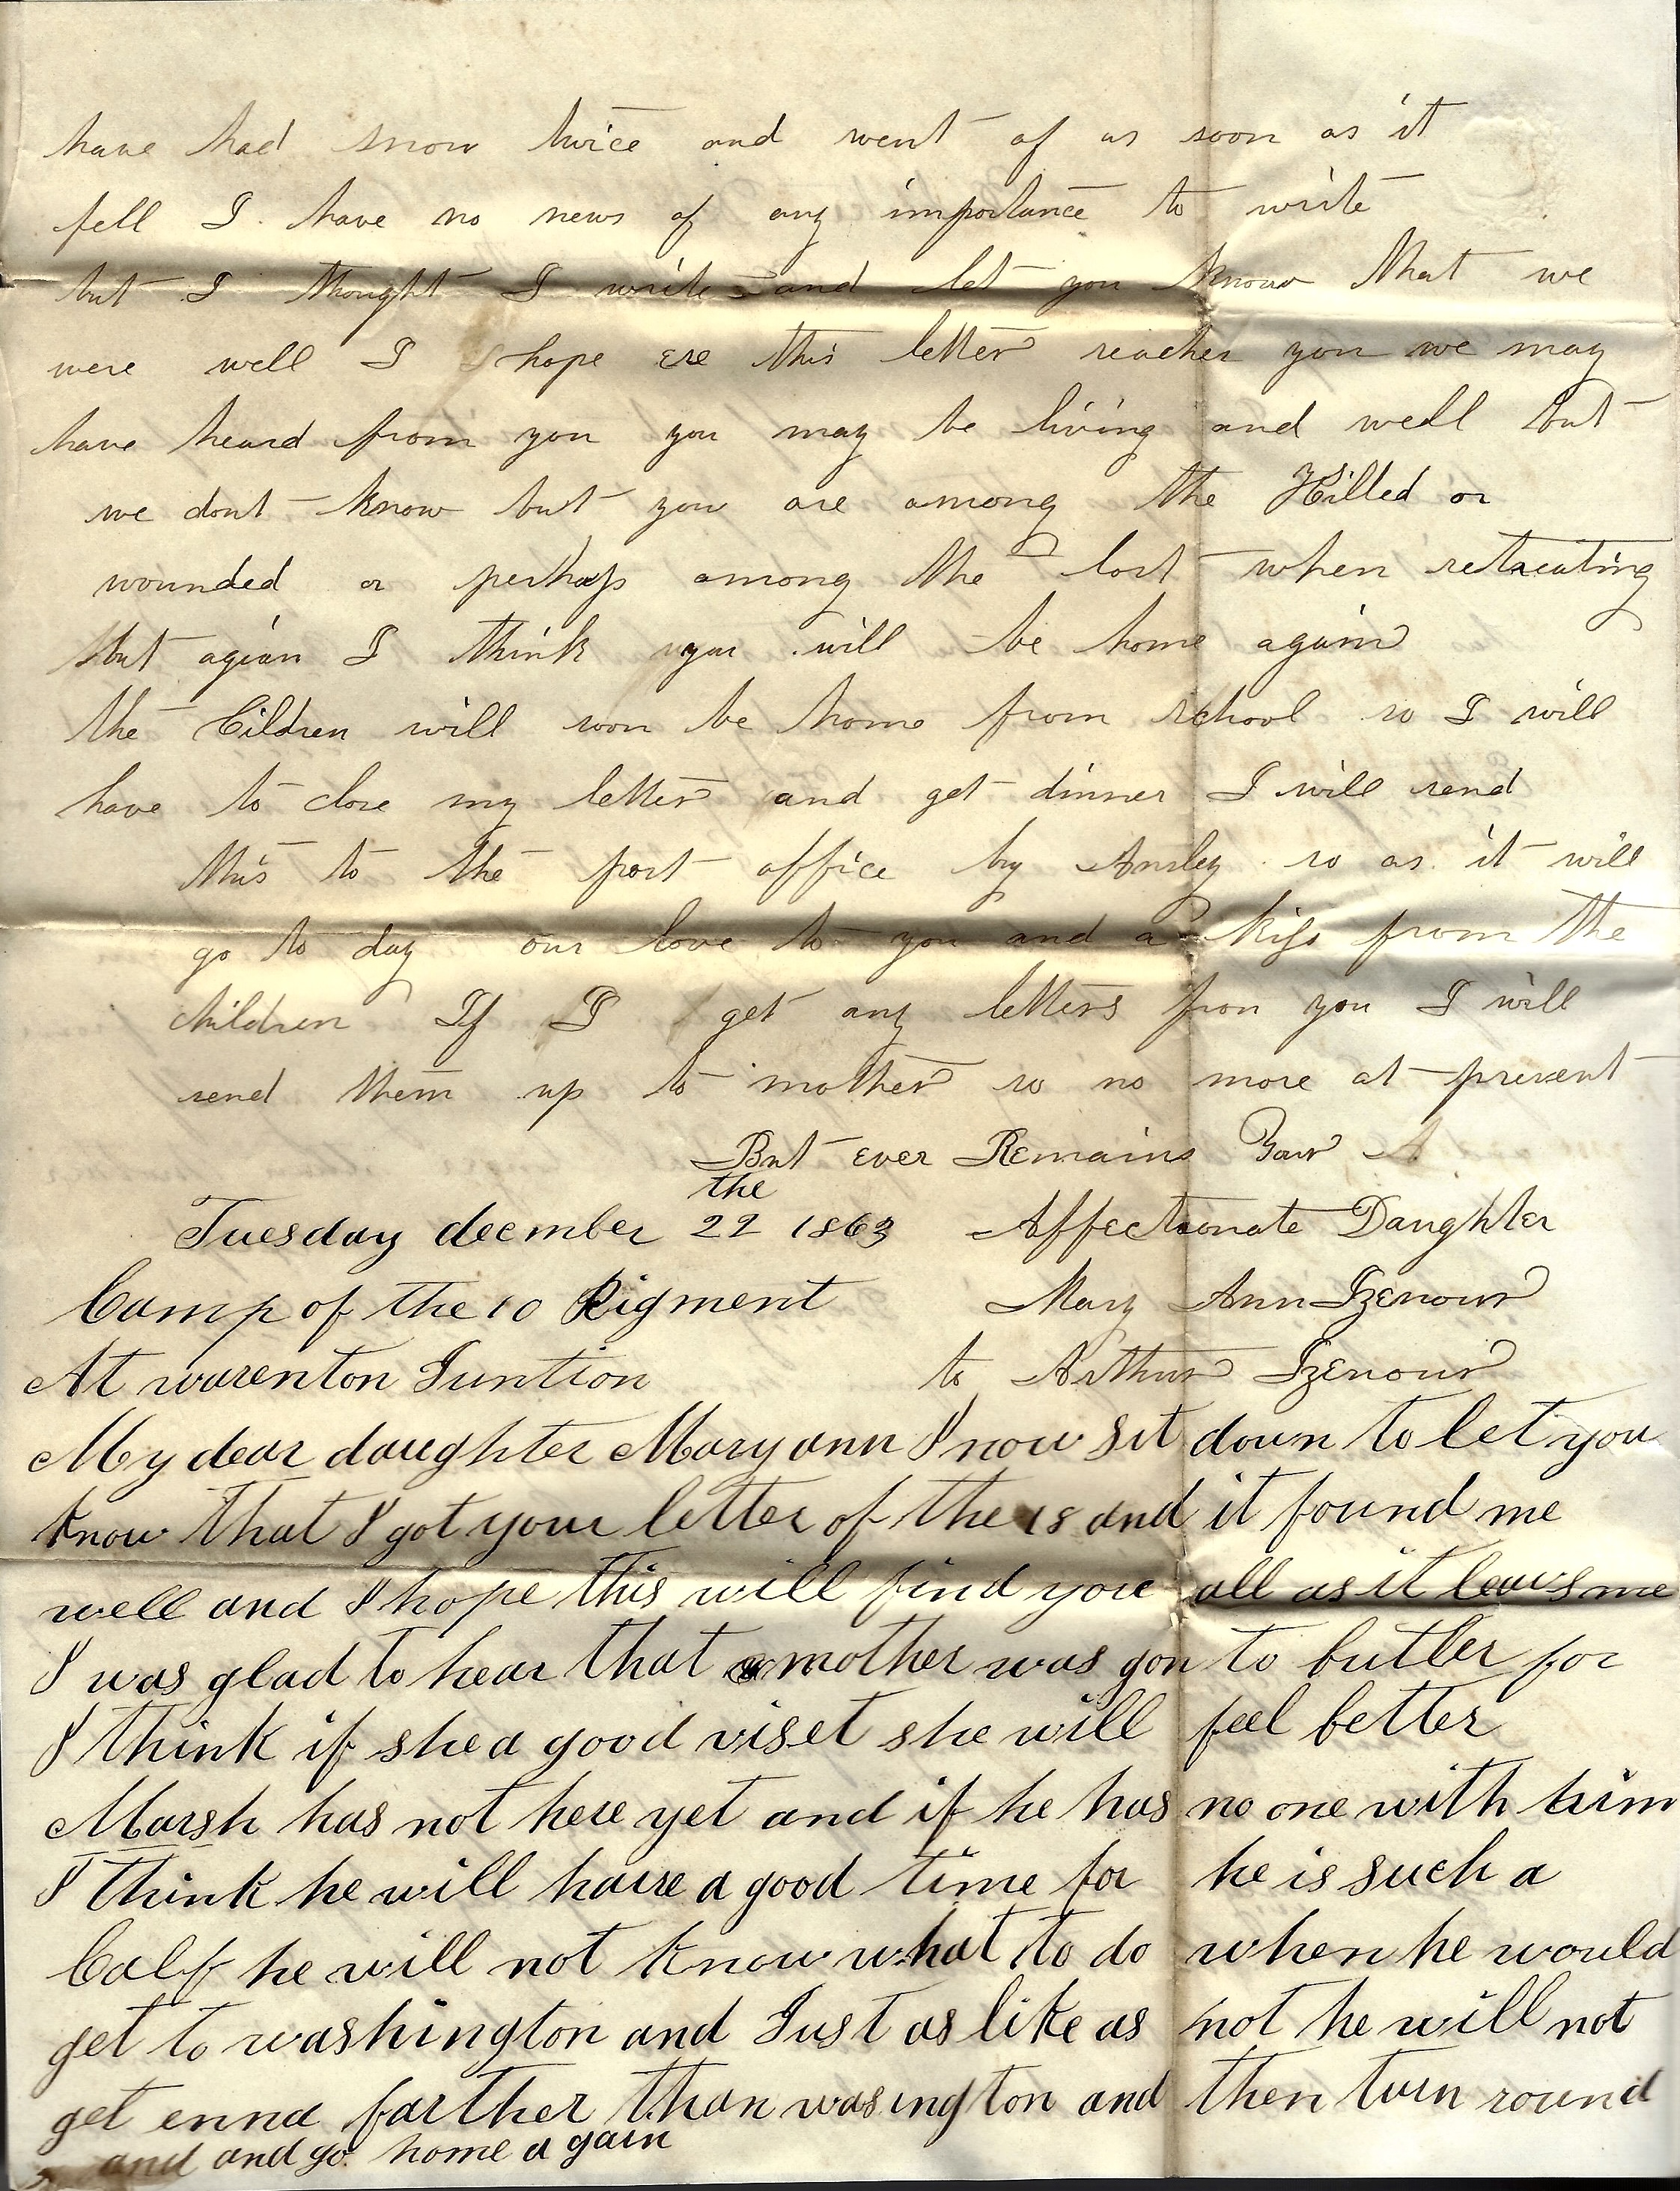 have had snow twice and went of as soon as it
fell I have no news of any importance to write
but I thought I write and let you know that we
were well I hope ere this letter reaches you we may
have heard from you you may be living and well but
we dont know but you are among the Killed or
wounded or perhaps among the lost when retreating
but agian I think you will be home again
the Cildren will soon be home from school so I will
have to close my letter and get dinner I will send
this to the post office by Ansley so as it will
go to day our love to you and a kiss from the
children If I get any letters fron you I will
send them up to mother so no more at present
But ever Remains Your A
Affectionate Daughter
Mary Ann Izenour
to Arthur Izenour
the
Tuesday decmber 22 1863
Camp of the 10 Rigment
At warenton Juntion
My dear daughter Mary ann I now sit down to let you
know that I got your letter of the 18 and it found me
well and I hope this will find you all as it leavs me
I was glad to hear that mother was gon to butler for
I think if she a good viset she will feel better
Marsh has not here yet and if he has no one with him
I think he will have a good time for he is such a
Calf he will not know what to do when he would
get to washington and Just as like as not he will not
get enna farther than wasington and then turn round
and and go home a gain